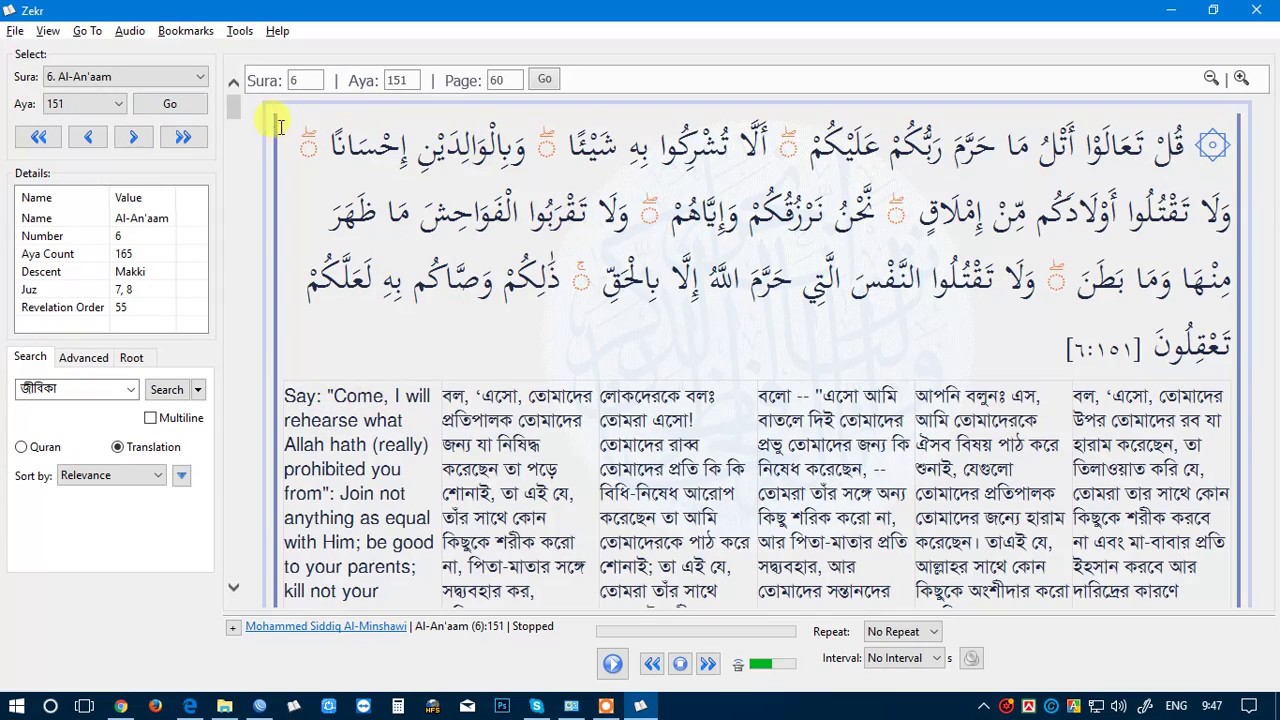 Zekr
File View Go To Audio Bookmarks Tools Help
Select:
Sura: 6. Al-An'aam
Aya: 151 Go
Details:
Name Value
Name Al-An'aam
Number 6
Aya Count 165
Descent Makki
Juz 7, 8
Revelation Order 55
Search Advanced Root
জীবিকা Search
Multiline
Quran Translation
Sort by: Relevance
Sura: 6 | Aya: 151 | Page: 60 Go
قُلْ تَعَالَوْا أَتْلُ مَا حَرَّمَ رَبُّكُمْ عَلَيْكُمْ ۖ أَلَّا تُشْرِكُوا بِهِ شَيْئًا ۖ وَبِالْوَالِدَيْنِ إِحْسَانًا ۖ
وَلَا تَقْتُلُوا أَوْلَادَكُم مِّنْ إِمْلَاقٍ ۖ نَّحْنُ نَرْزُقُكُمْ وَإِيَّاهُمْ ۖ وَلَا تَقْرَبُوا الْفَوَاحِشَ مَا ظَهَرَ
مِنْهَا وَمَا بَطَنَ ۖ وَلَا تَقْتُلُوا النَّفْسَ الَّتِي حَرَّمَ اللَّهُ إِلَّا بِالْحَقِّ ۚ ذَٰلِكُمْ وَصَّاكُم بِهِ لَعَلَّكُمْ
تَعْقِلُونَ [٦:١٥١]
Say: "Come, I will
rehearse what
Allah hath (really)
prohibited you
from": Join not
anything as equal
with Him; be good
to your parents;
kill not your
বল, ‘এসো, তোমাদের
প্রতিপালক তোমাদের
জন্য যা নিষিদ্ধ
করেছেন তা পড়ে
শোনাই, তা এই যে,
তাঁর সাথে কোন
কিছুকে শরীক করো
না, পিতা-মাতার সঙ্গে
সদ্ব্যবহার কর,
লোকদেরকে বলঃ
তোমরা এসো!
তোমাদের রাব্ব
তোমাদের প্রতি কি কি
বিধি-নিষেধ আরোপ
করেছেন তা আমি
তোমাদেরকে পাঠ করে
শোনাই; তা এই যে,
তোমরা তাঁর সাথে
বলো -- "এসো আমি
বাতলে দিই তোমাদের
প্রভু তোমাদের জন্য কি
নিষেধ করেছেন, --
তোমরা তাঁর সঙ্গে অন্য
কিছু শরিক করো না,
আর পিতা-মাতার প্রতি
সদ্ব্যবহার, আর
তোমাদের সন্তানদের
আপনি বলুনঃ এস,
আমি তোমাদেরকে
ঐসব বিষয় পাঠ করে
শুনাই, যেগুলো
তোমাদের প্রতিপালক
তোমাদের জন্যে হারাম
করেছেন। তাএই যে,
আল্লাহর সাথে কোন
কিছুকে অংশীদার করো
বল, ‘এসো, তোমাদের
উপর তোমাদের রব যা
হারাম করেছেন, তা
তিলাওয়াত করি যে,
তোমরা তার সাথে কোন
কিছুকে শরীক করবে
না এবং মা-বাবার প্রতি
ইহসান করবে আর
দারিদ্রের কারণে
+ Mohammed Siddiq Al-Minshawi | Al-An'aam (6):151 | Stopped
Repeat: No Repeat
Interval: No Interval s
HFS
Ps
ENG 9:47